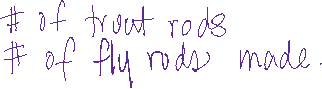 # of trout rods
# of fly rods made.